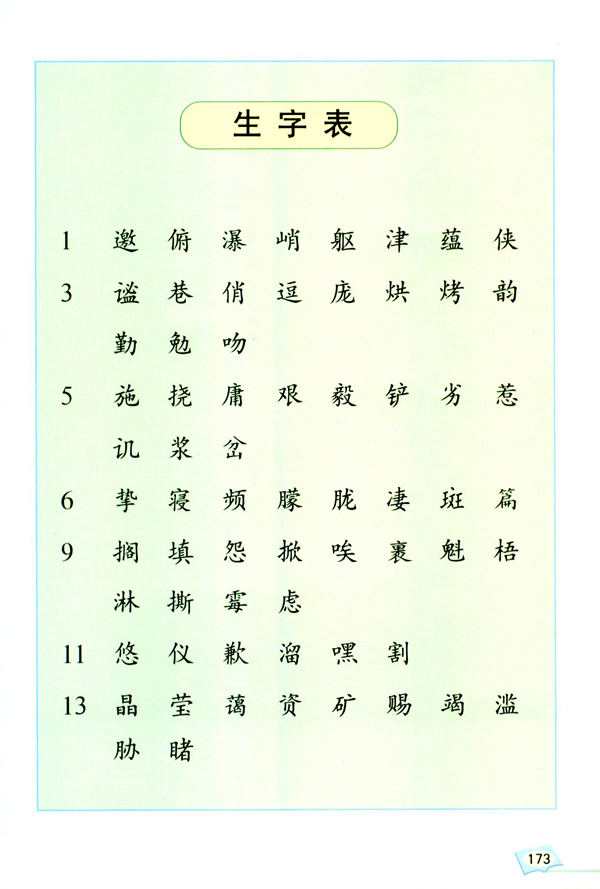 生字表
1 邀 俯 瀑 峭 躯 津 蕴 侠
3 谧 巷 俏 逗 庞 烘 烤 韵
勤 勉 吻
5 施 挠 庸 艰 毅 铲 劣 惹
讥 浆 岔
6 挚 寝 频 朦 胧 凄 斑 篇
9 搁 填 怨 掀 唉 裹 魁 梧
淋 撕 霉 虑
11 悠 仪 歉 溜 嘿 割
13 晶 莹 蔼 资 矿 赐 竭 滥
胁 睹
173